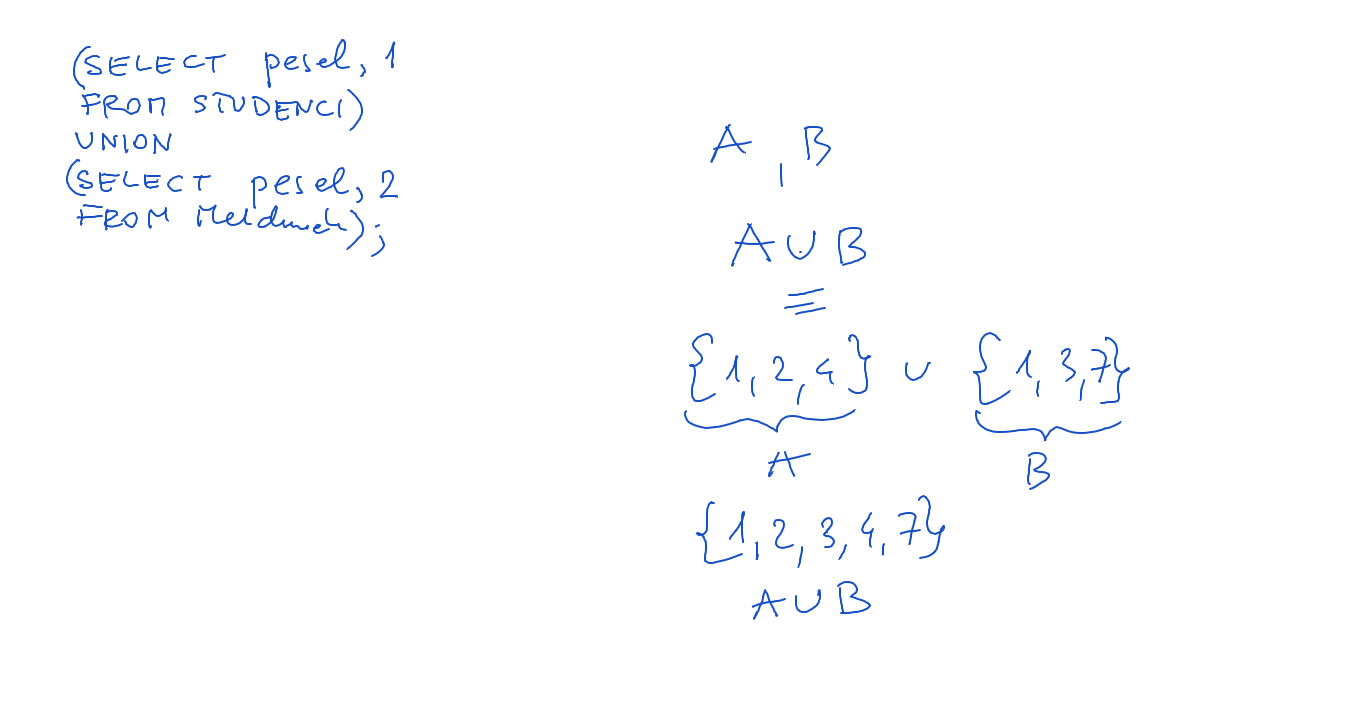 (SELECT pesel, 1
FROM STUDENCI)
UNION
(SELECT pesel, 2
FROM );
A, B
A ∪ B
=
{1, 2, 4} ∪ {1, 3, 7}
A B
{1, 2, 3, 4, 7}
A ∪ B